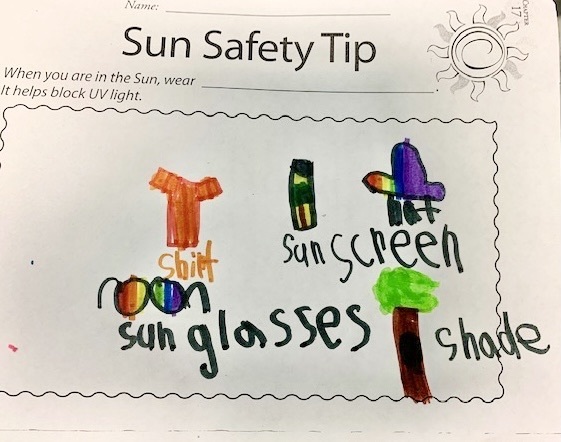 Name:
CHAPTER
17
Sun Safety Tip
When you are in the Sun, wear
It helps block UV light.
shirt
sunscreen
hat
sunglasses
shade